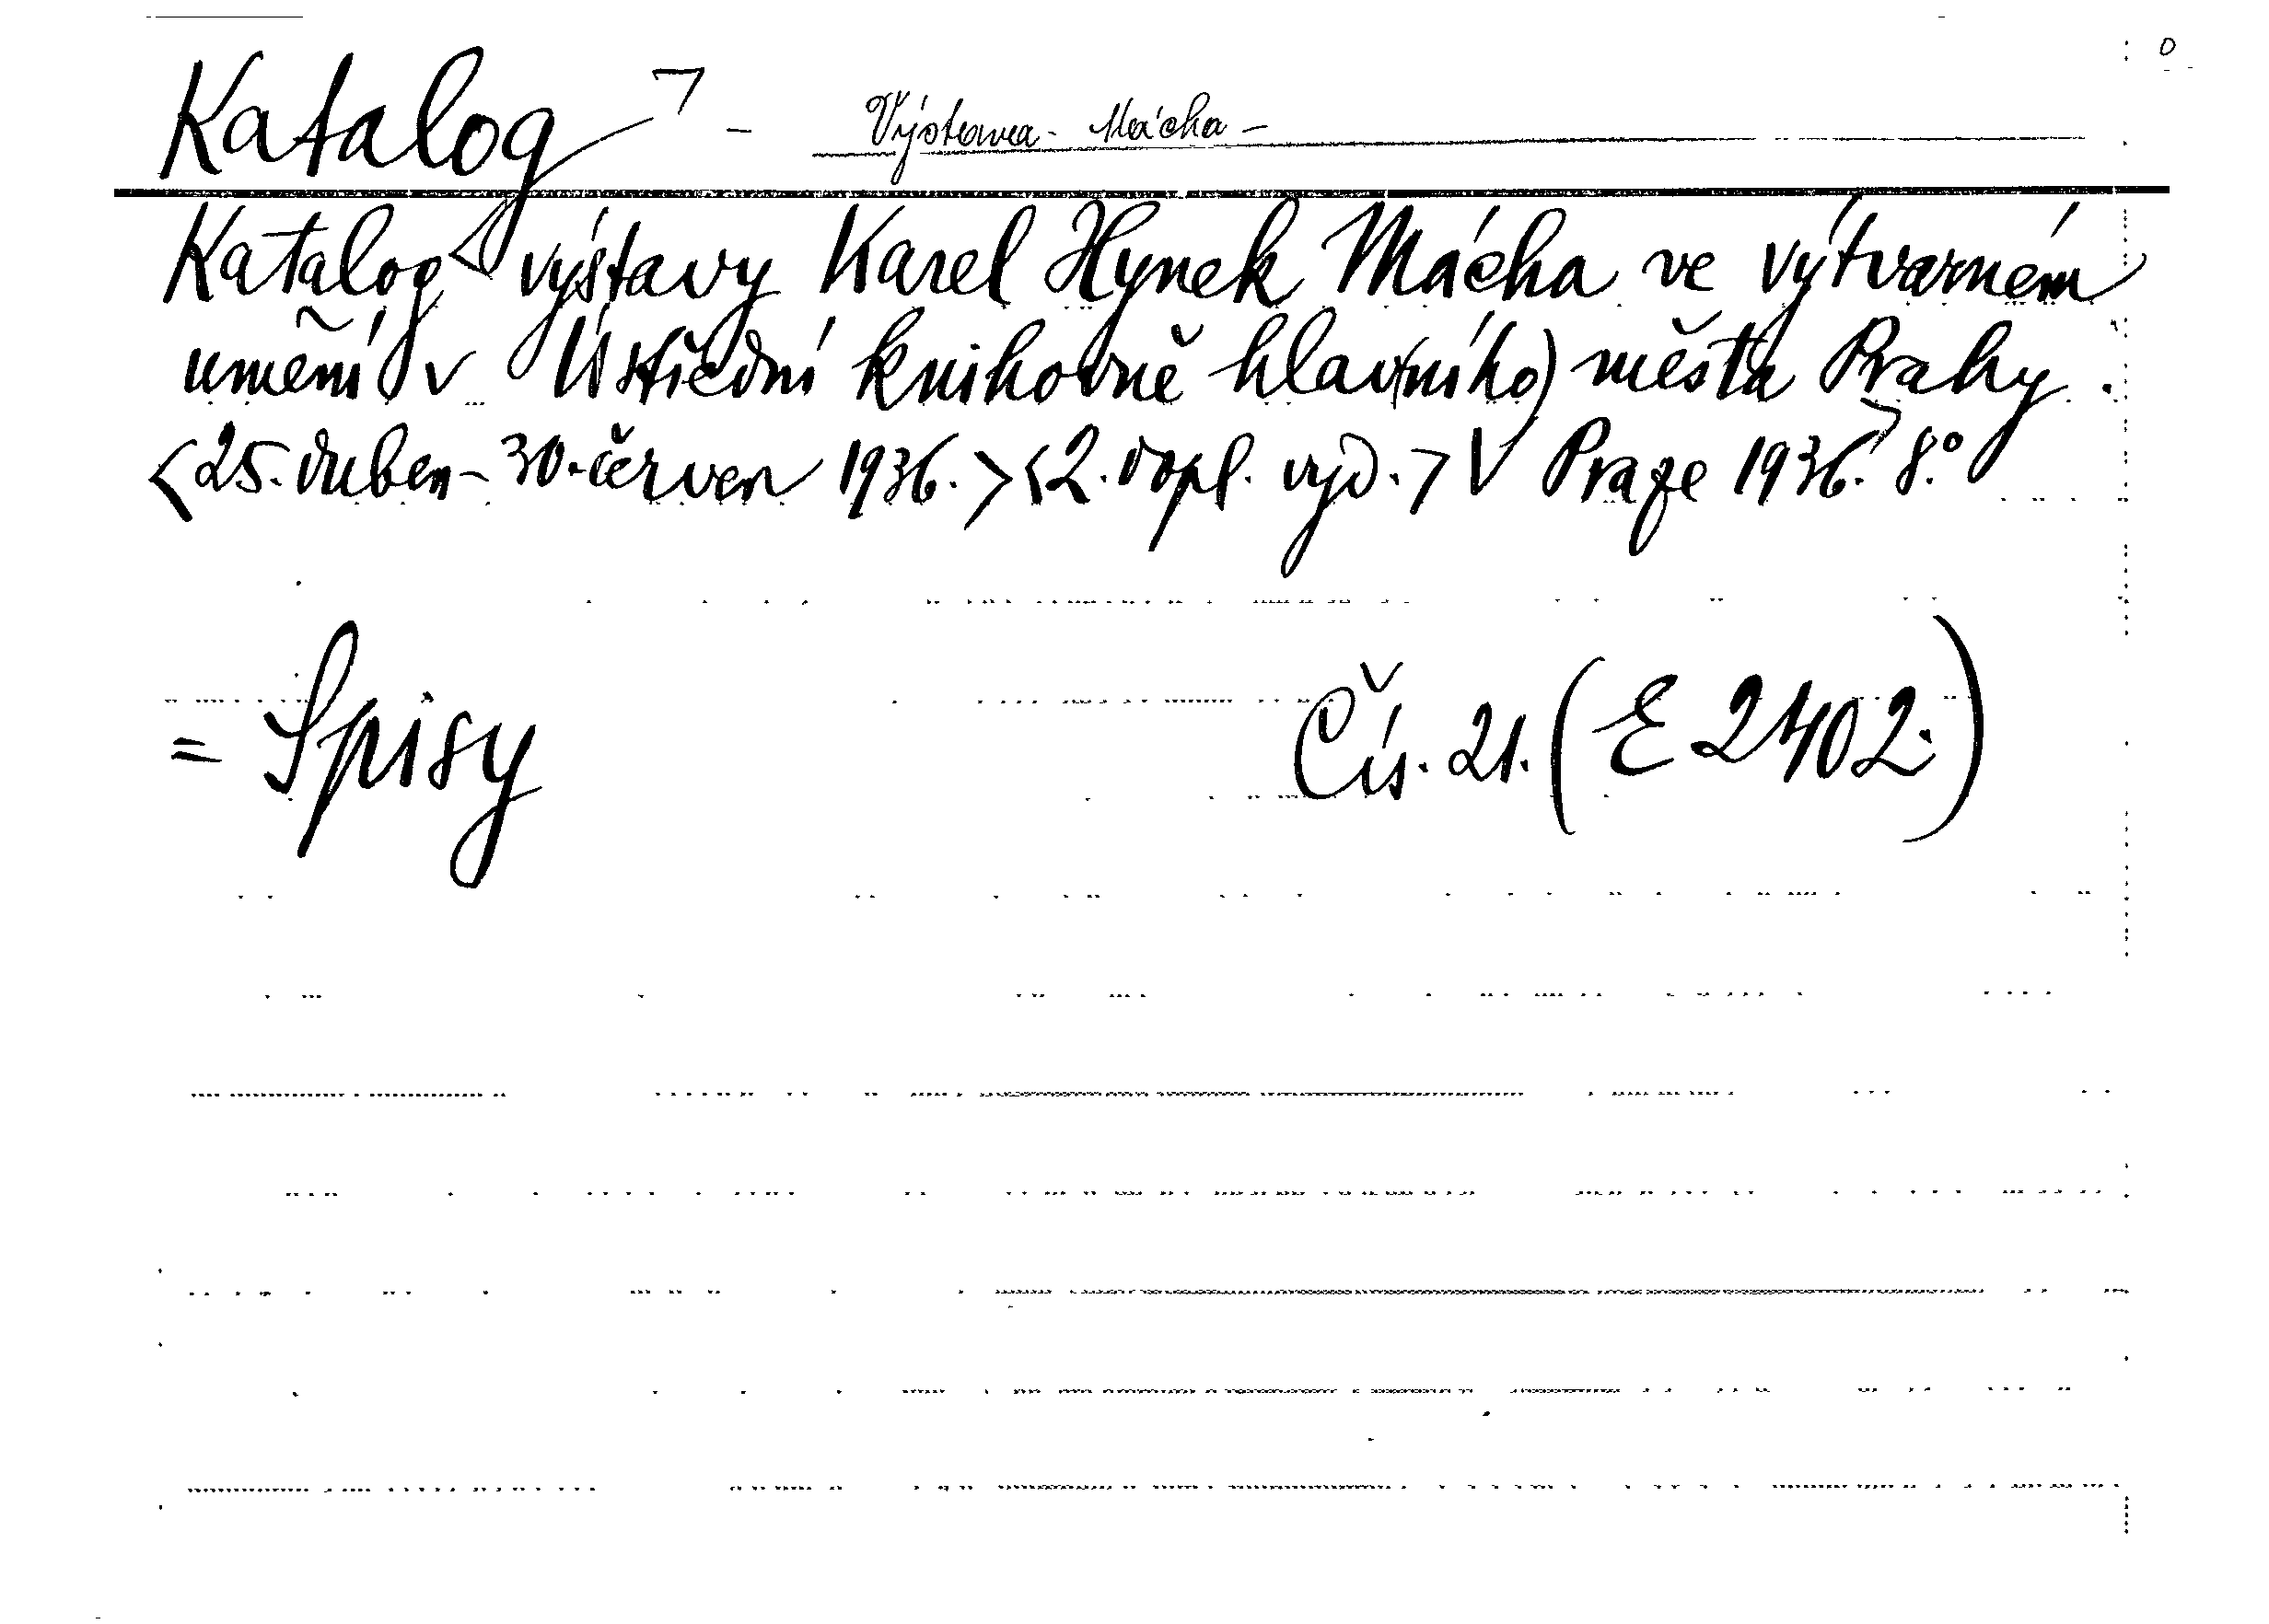 Katalog - Výstava - Mácha -
Katalog výstavy Karel Hynek Mácha ve výtvarném
umění v Ústřední knihovně hlav(ního) města Prahy.
<25. duben - 30. červen 1936.> <2. dopl. vyd.> V Praze 1936. 8.°
= Spisy Čís. 21. (E 2402.)